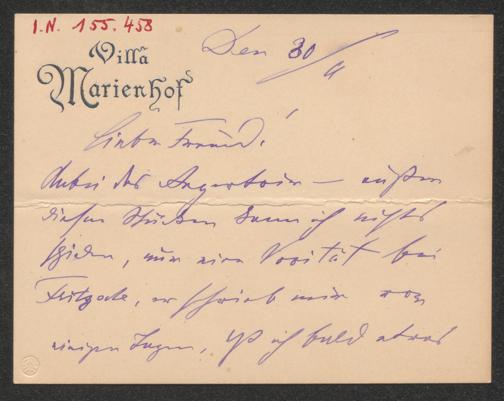 I.N. 155.458
Villa
Marienhof
Den 30/
Lieber Freund!
Anbei das – außer
diesen Stücken kann ich nichts
finden, nur eine bei
, er schrieb mir vor
einigen Tagen, ich bald etwas